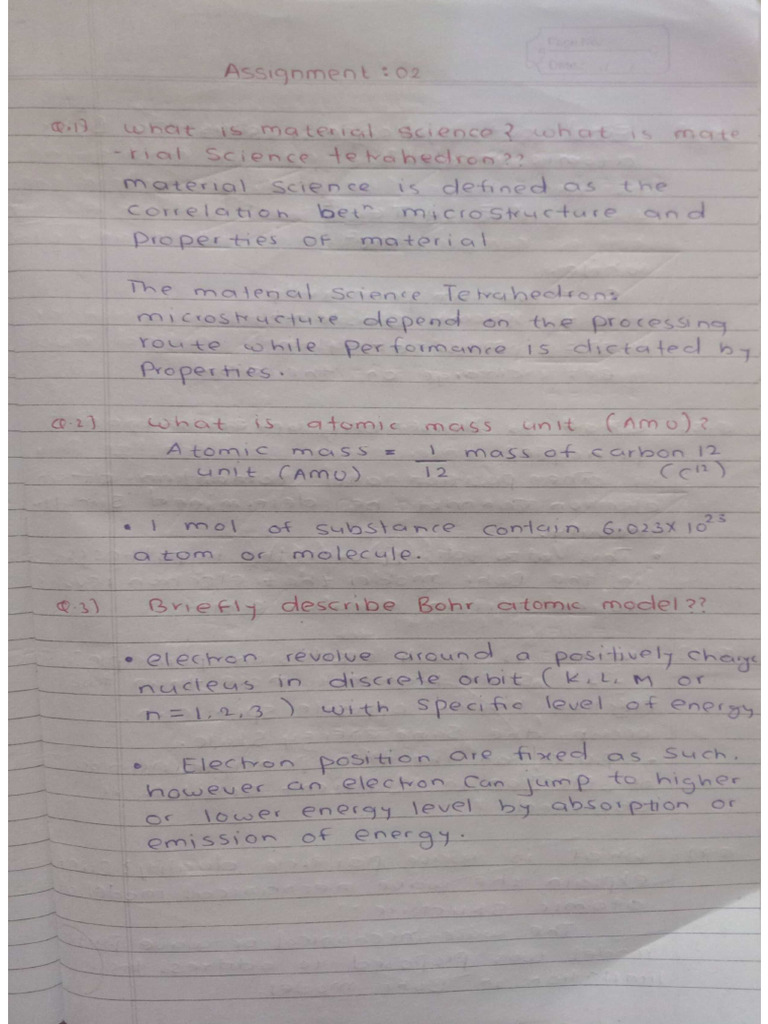 Assignment : 02
Q.1) What is material science? What is mate
-rial Science tetrahedron??
material science is defined as the
correlation betⁿ microstructure and
Properties of material
The material science Tetrahedron:
microstructure depend on the processing
route while performance is dictated by
Properties.
Q.2) What is atomic mass unit (AMU)?
Atomic mass = 1/12 mass of carbon 12
unit (AMU) (C¹²)
• 1 mol of substance contain 6.023 x 10²³
atom or molecule.
Q.3) Briefly describe Bohr atomic model??
• electron revolve around a positively charge
nucleus in discrete orbit (K, L, M or
n = 1, 2, 3) with specific level of energy
• Electron position are fixed as such,
however an electron can jump to higher
or lower energy level by absorption or
emission of energy.